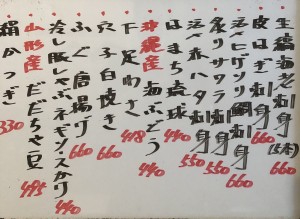 生縞海老刺身(5本) 660
皮はぎ刺身 660
活〆ヒゲソリ鯛刺身 660
炙りサワラ刺身 550
活〆赤ハタ刺身 550
はまち琉球 440
沖縄産海ぶどう 440
下足わさ 418
穴子白焼き 660
ふぐ唐揚げ 660
冷し豚しゃぶネギソースがけ 440
山形産だだちゃ豆 495
絹かつぎ 330